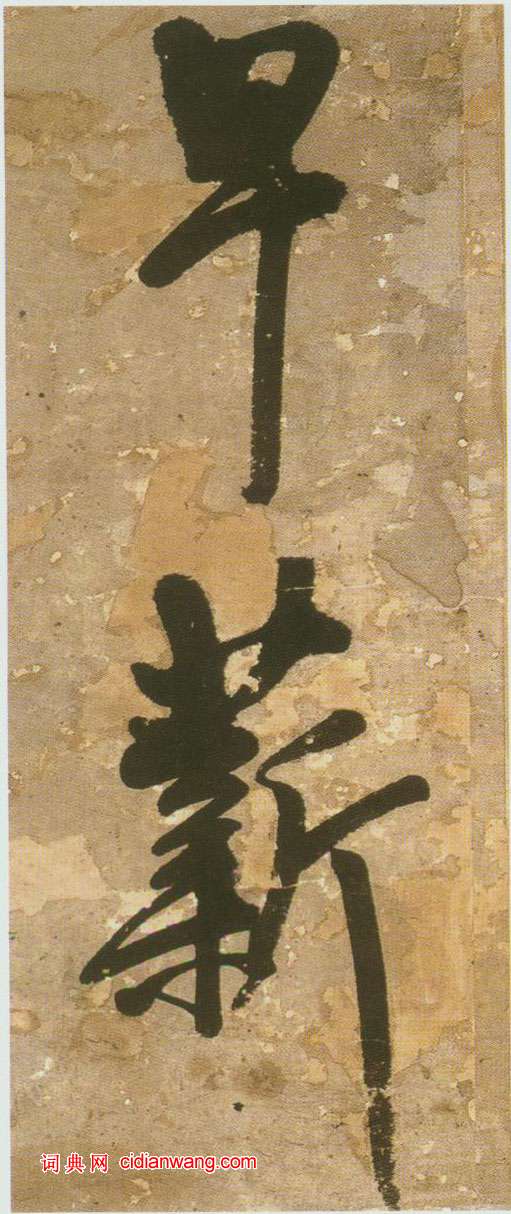 早
薪
词典网 cidianwang.com